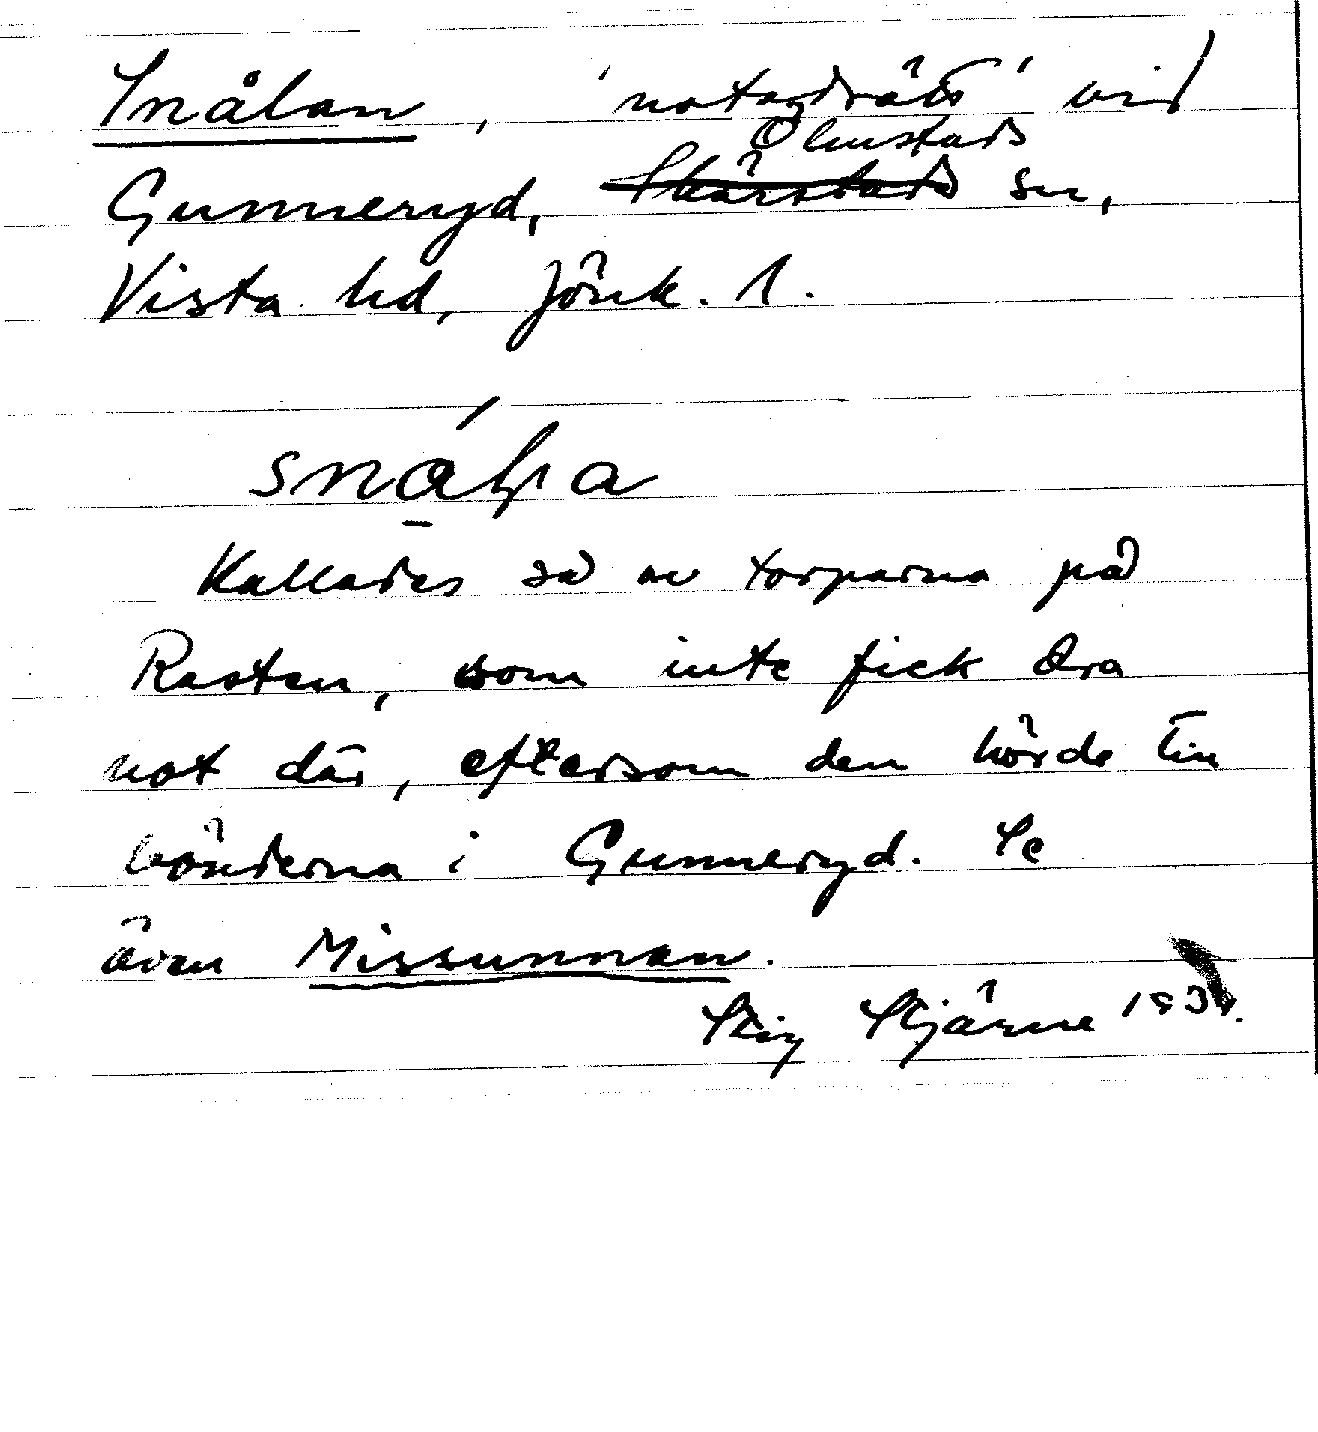 Snålan, 'notadrätt' vid
Ölmstads
Gunneryd, Skärstads sn,
Vista hd, Jönk. l.
Kallades så av torparna på
Rasten, som inte fick dra
not där, eftersom den hörde till
bönderna i Gunneryd. Se
även Missunnan.
Stig Stjärne